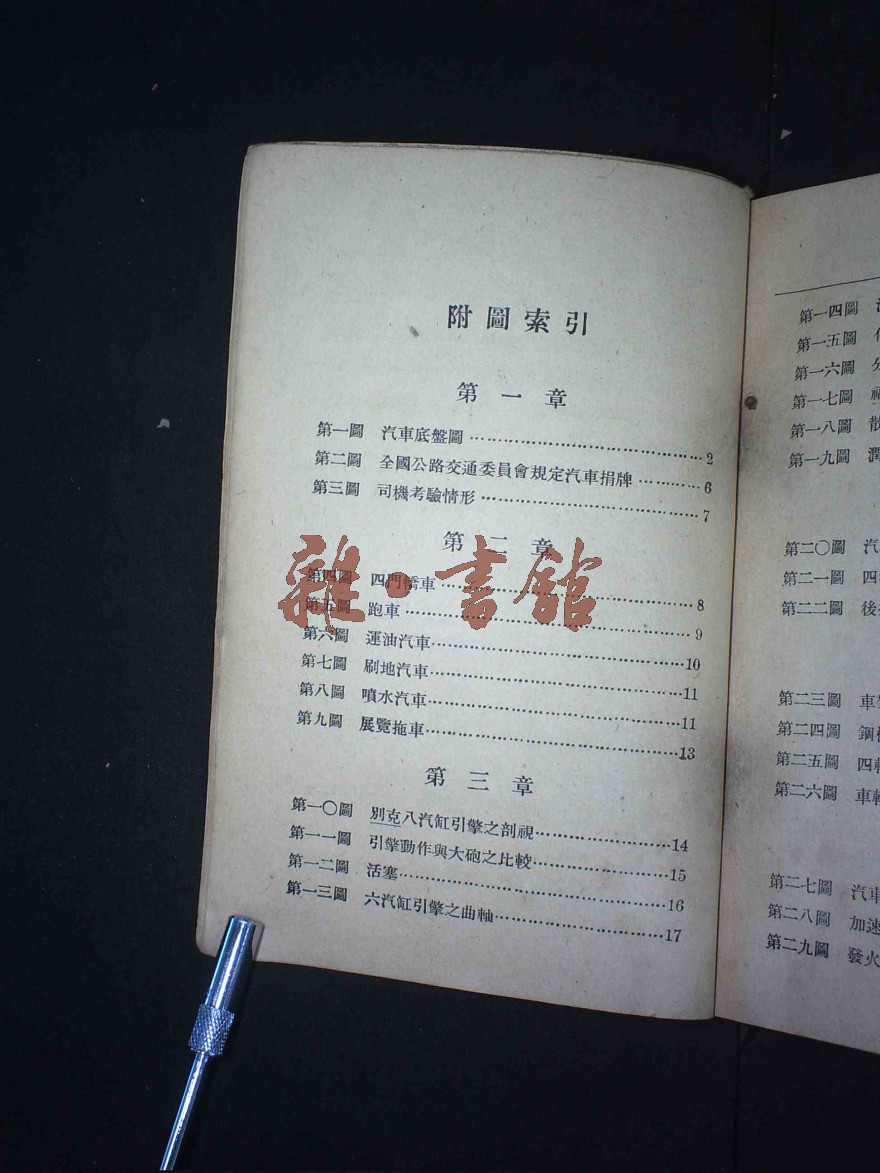 附圖索引
第一章
第一圖 汽車底盤圖………………………2
第二圖 全國公路交通委員會規定汽車捐牌…………6
第三圖 司機考驗情形………………………7
第二章
第四圖 四門轎車………………………8
第五圖 跑車………………………9
第六圖 運油汽車………………………10
第七圖 刷地汽車………………………11
第八圖 噴水汽車………………………11
第九圖 展覽拖車………………………13
第三章
第一〇圖 別克八汽缸引擎之剖視……………14
第一一圖 引擎動作與大砲之比較……………15
第一二圖 活塞………………………16
第一三圖 六汽缸引擎之曲軸………………17
雜·書館
第一四圖
第一五圖
第一六圖
第一七圖
第一八圖 散
第一九圖 潤
第二〇圖 汽
第二一圖 四
第二二圖 後
第二三圖 車
第二四圖 鋼
第二五圖 四輪
第二六圖 車輪
第二七圖 汽車
第二八圖 加速
第二九圖 發火